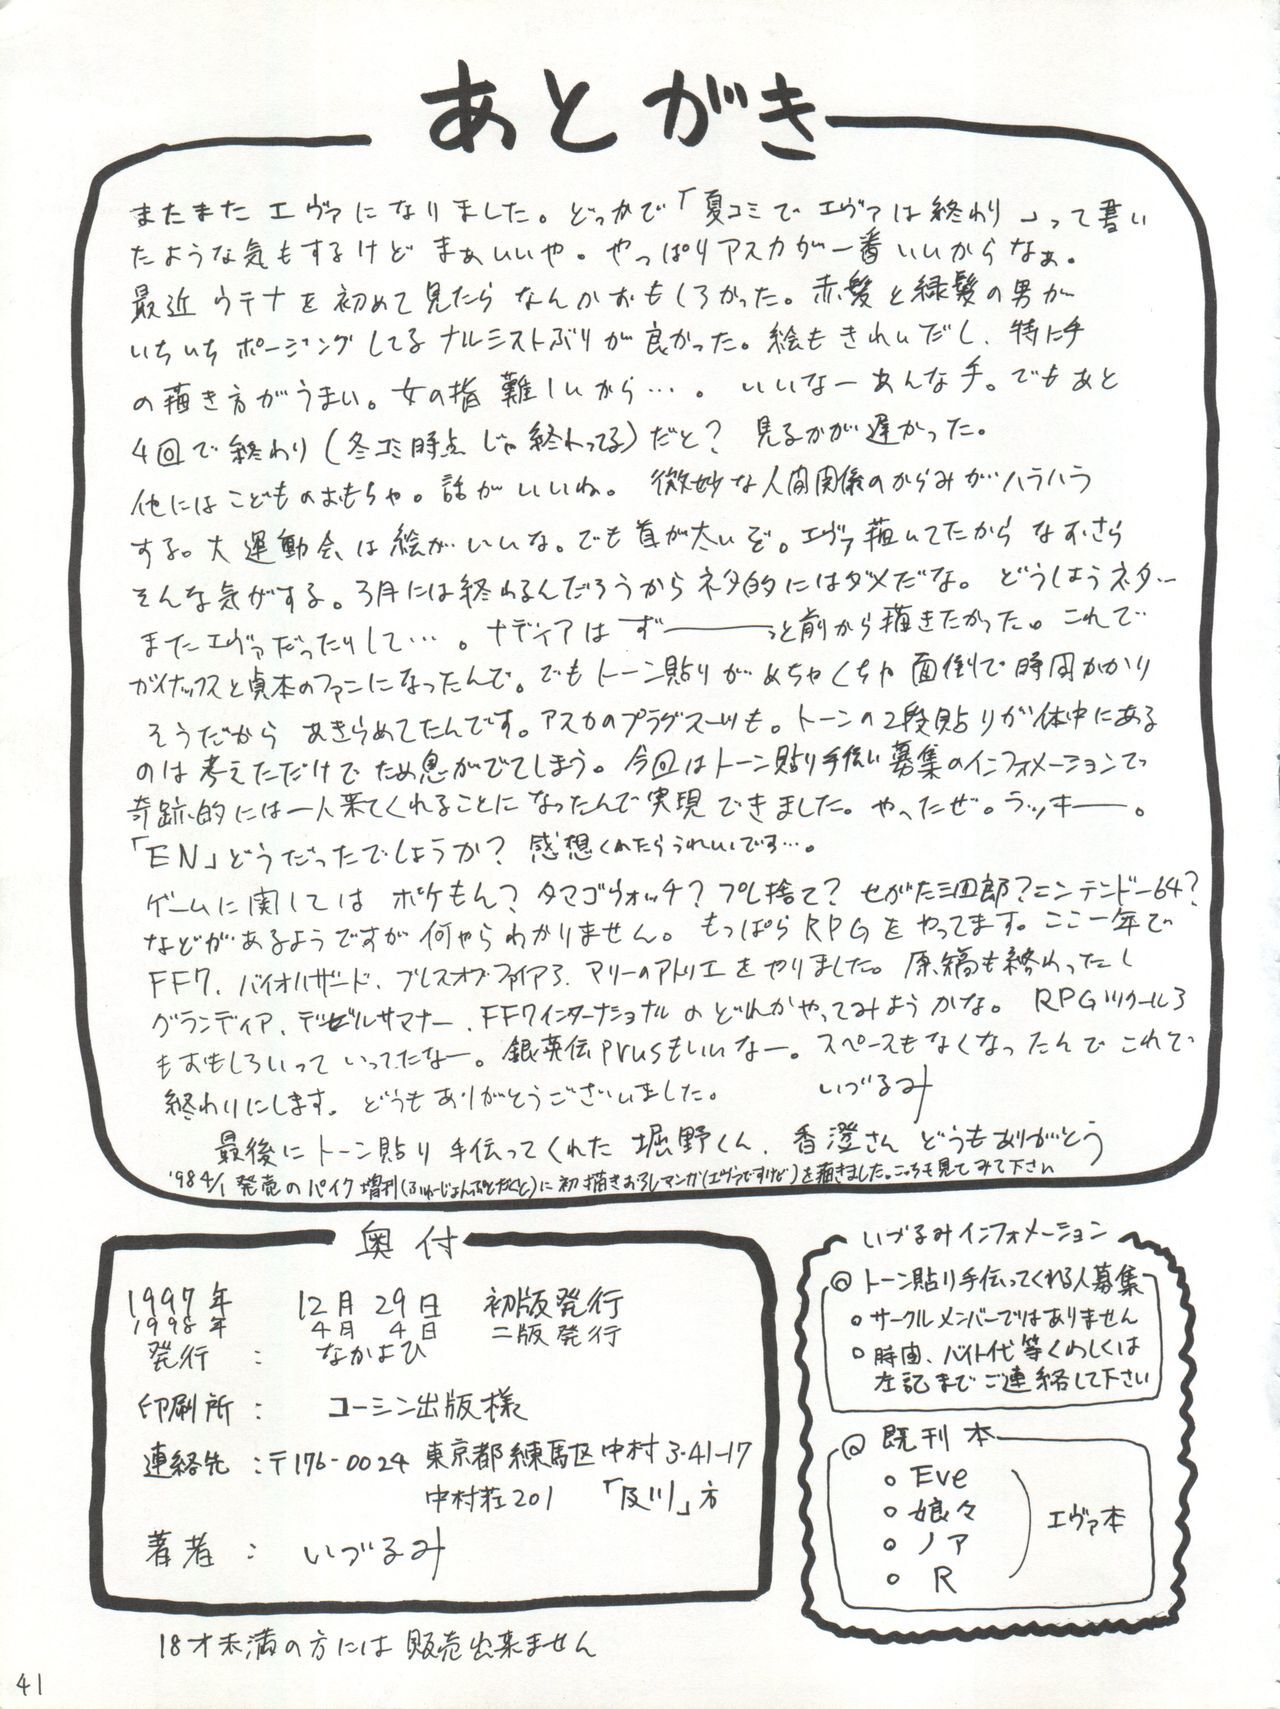 あとがき
またまた エヴァになりました。どっかで「夏コミで エヴァは終わり」って書い
たような気もするけど まぁいいや。やっぱりアスカが一番いいからなぁ。
最近 ウテナを初めて見たら なんかおもしろかった。赤髪と緑髪の男が
いちいち ポージングしてる ナルシストぶりが良かった。絵もきれいだし、特に手
の描き方がうまい。女の指 難しいから…。 いいなーあんな手。でもあと
4回で終わり(冬コミ時点じゃ終わってる)だと? 見るのが遅かった。
他にはこどものおもちゃ。話がいいね。 微妙な人間関係のからみがハラハラ
する。大運動会は絵がいいな。でも首が太いぞ。エヴァ描いてたからなおさら
そんな気がする。3月には終わるんだろうからネタ的にはダメだな。 どうしようネタ…
またエヴァだったりして…。ナディアはず―――っと前から描きたかった。これで
ガイナックスと貞本のファンになったんで。でもトーン貼りがめちゃくちゃ面倒で時間かかり
そうだから あきらめてたんです。アスカのプラグスーツも。トーンの2段貼りが体中にある
のは考えただけでため息がでてしまう。今回はトーン貼り手伝い募集のインフォメーションで
奇跡的には一人来てくれることになったんで実現できました。やったぜ。ラッキー。
「EN」どうだったでしょうか? 感想くれたらうれしいです…。
ゲームに関しては ポケもん? タマゴウォッチ? プレ捨て? せがた三四郎?ニンテンドー64?
などがあるようですが何やらわかりません。もっぱらRPGをやってます。ここ一年で
FF7、バイオハザード、ブレスオブファイア3、マリーのアトリエをやりました。原稿も終わったし
グランディア、デビルサマナー、FF7インターナショナルのどれかやってみようかな。 RPGツクール3
もおもしろいって いってたなー。銀英伝prusもいいなー。スペースもなくなったんでこれで
終わりにします。どうもありがとうございました。 いづるみ
最後にトーン貼り手伝ってくれた 堀野くん、香澄さん どうもありがとう
'98 4/1 発売のパイク増刊(ふゅーじょんぷろだくと)に初描きおろしマンガ(エヴァですけど)を描きました。こっちも見てみて下さい
奥付
1997年 12月29日 初版発行
1998年 4月 4日 二版発行
発行 : なかよひ
印刷所 : コーシン出版様
連絡先 : 〒176-0024 東京都練馬区中村3-41-17
中村荘201 「及川」方
著者 : いづるみ
18才未満の方には販売出来ません
41
いづるみインフォメーション
◎ トーン貼り手伝ってくれる人募集
○ サークルメンバーではありません
○ 時間、バイト代等くわしくは
左記までご連絡して下さい
◎ 既刊本
○ Eve
○ 娘々
○ ノア
○ R
エヴァ本